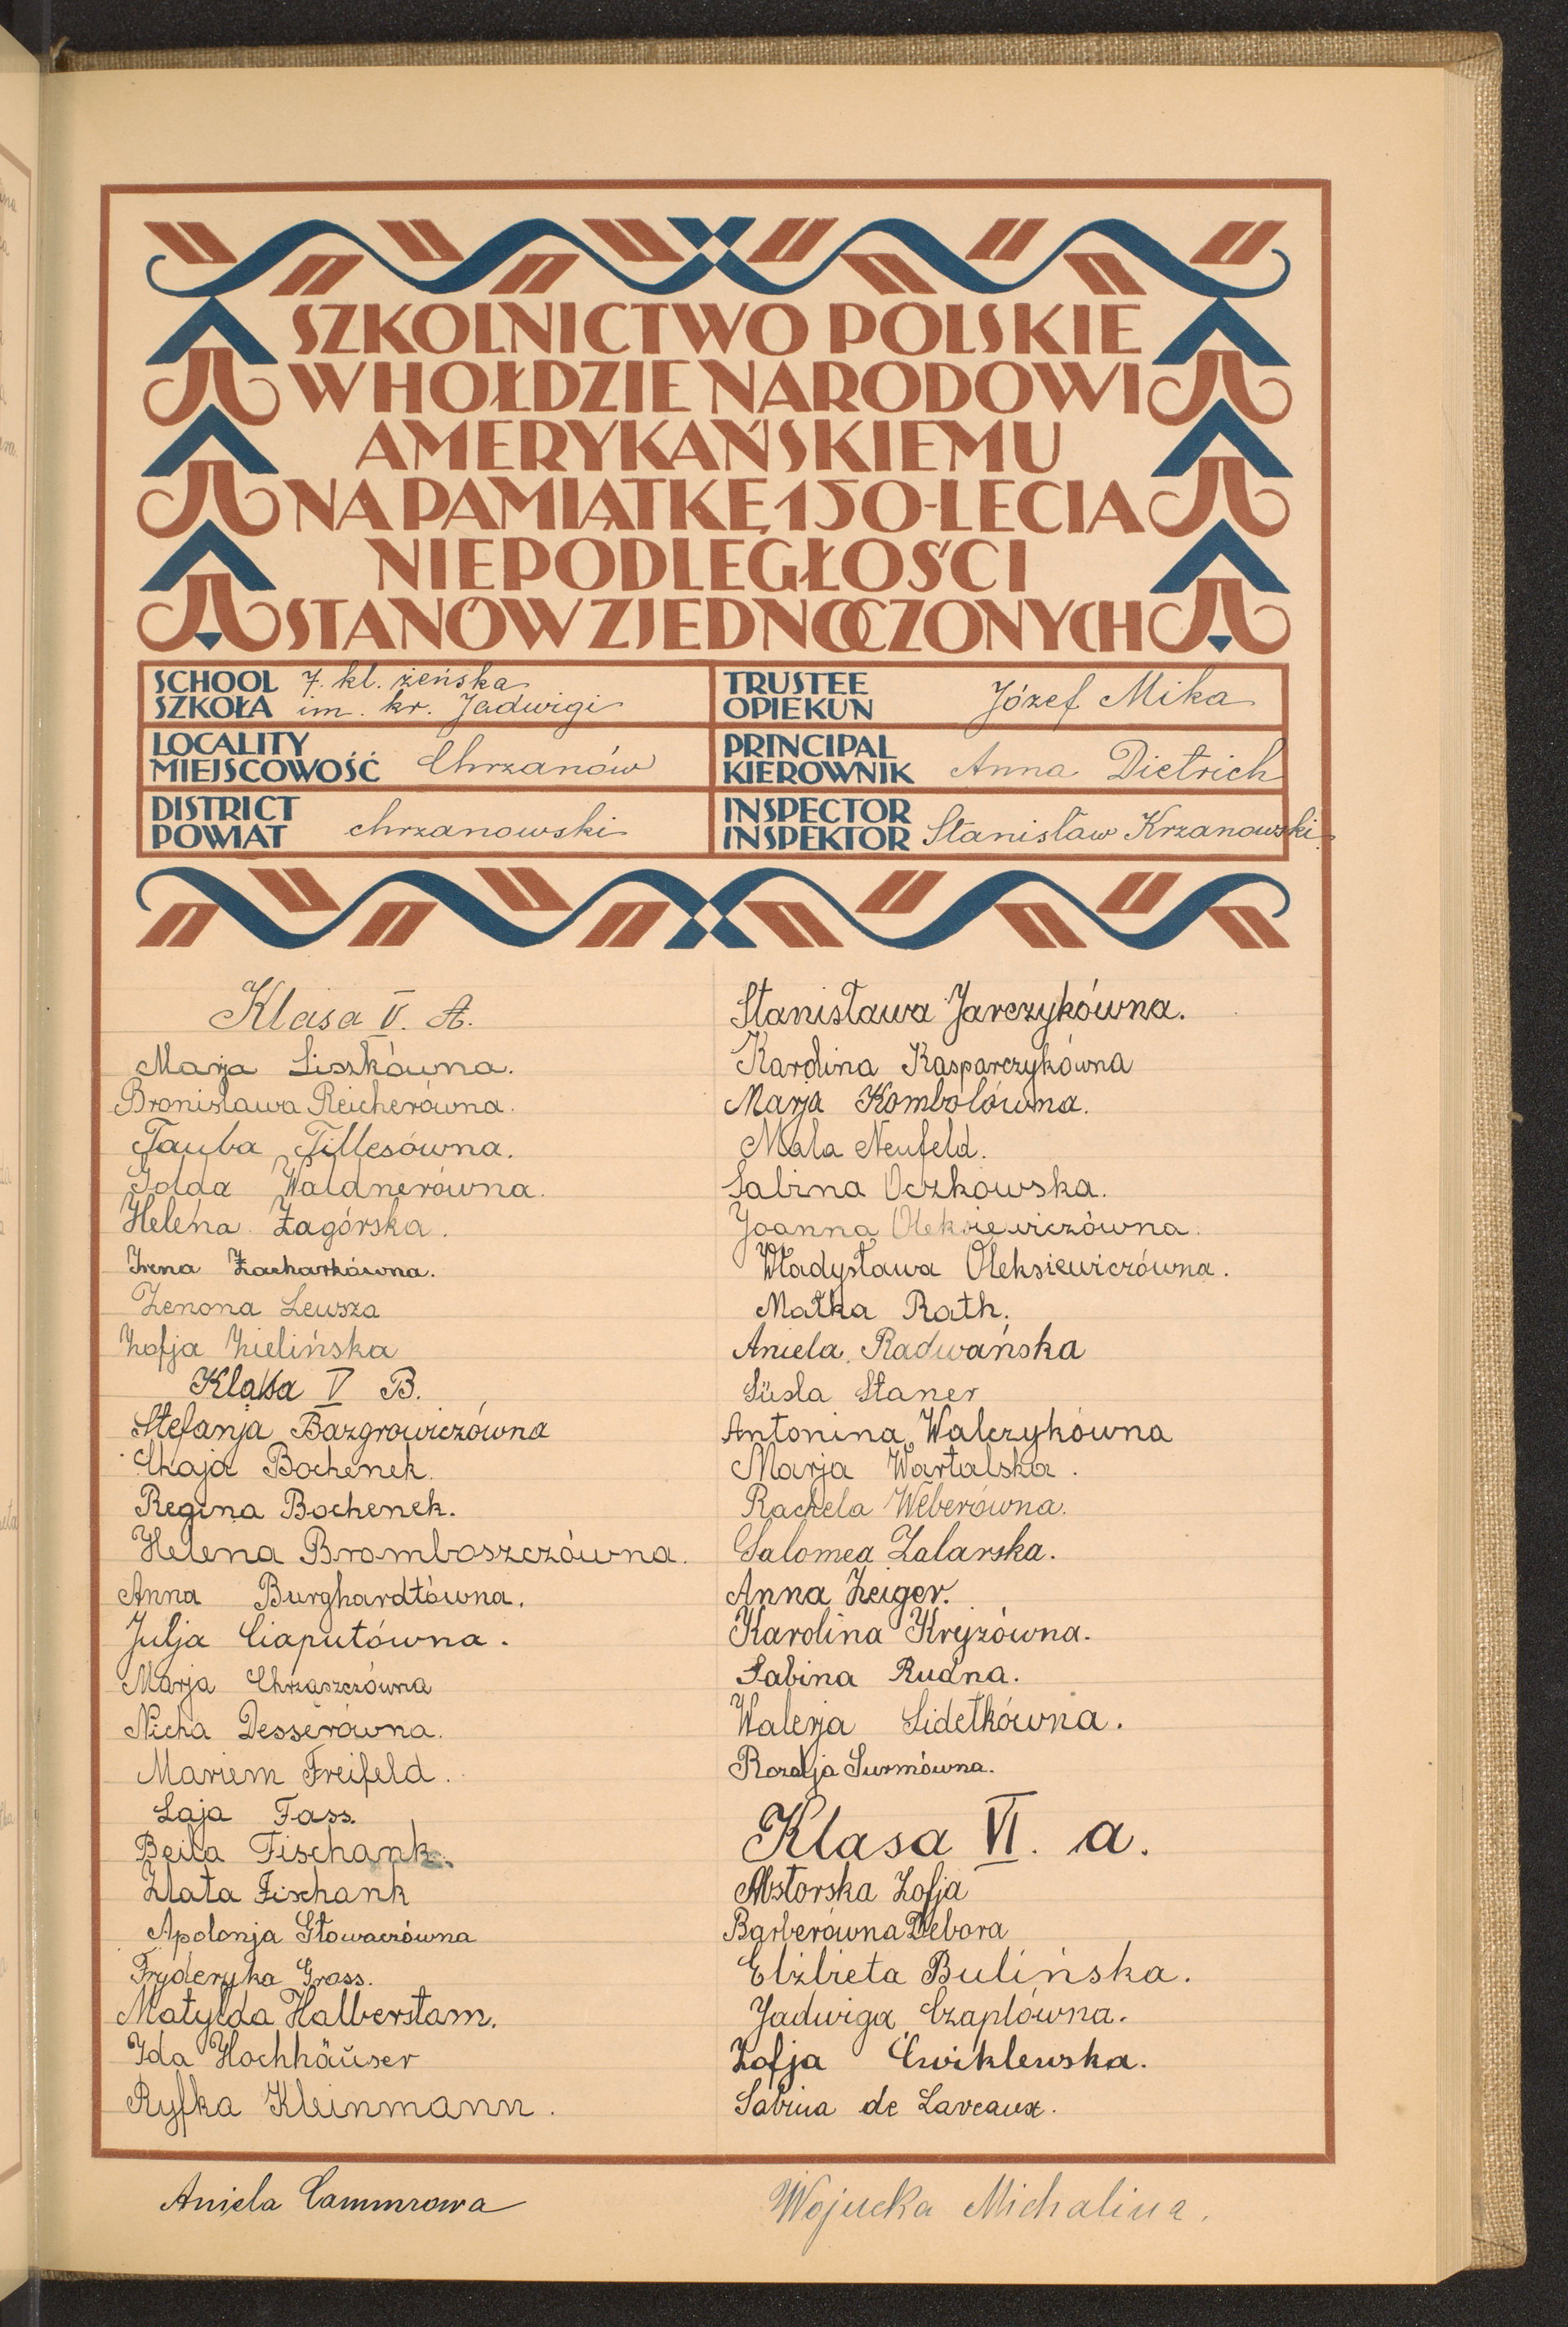 SZKOLNICTWO POLSKIE
W HOŁDZIE NARODOWI
AMERYKAŃSKIEMU
NA PAMIĄTKĘ 150-LECIA
NIEPODLEGŁOŚCI
STANÓW ZJEDNOCZONYCH
SCHOOL
SZKOŁA
7. kl. żeńska
im. kr. Jadwigi
TRUSTEE
OPIEKUN
Józef Mika
LOCALITY
MIEJSCOWOŚĆ
Chrzanów
PRINCIPAL
KIEROWNIK
Anna Dietrich
DISTRICT
POWIAT
chrzanowski
INSPECTOR
INSPEKTOR
Stanisław Krzanowski.
Klasa V. A.
Marja Liszkówna.
Bronisława Reicherówna.
Tauba Tillesówna.
Golda Waldnerówna.
Helena Zagórska.
Irena Zacharkówna.
Zenona Lewsza
Zofja Zielińska
Klasa V B.
Stefanja Bazgrowiczówna
Chaja Bochenek.
Regina Bochenek.
Helena Bromboszczówna.
Anna Burghardtówna.
Julja Ciaputówna.
Marja Chrząszczówna
Nicha Desserówna.
Mariem Freifeld.
Laja Fass.
Beila Fischank.
Zlata Fischank
Apolonja Głowaczówna
Fryderyka Gross.
Matylda Halberstam.
Ida Hochhäuser
Ryfka Kleinmann.
Stanisława Jarczykówna.
Karolina Kasparczykówna
Marja Kombolówna.
Mala Neufeld.
Sabina Oczkowska.
Joanna Oleksiewiczówna.
Władysława Oleksiewiczówna.
Małka Rath.
Aniela Radwańska
Süsla Staner
Antonina Walczykówna
Marja Wartalska.
Rachela Weberówna.
Salomea Zalarska.
Anna Zeiger.
Karolina Kryzówna.
Sabina Rudna.
Walerja Sidełkówna.
Rozalja Surmówna.
Klasa VI. a.
Abstorska Zofja
Barberówna Debora
Elżbieta Bulińska.
Jadwiga Czaplówna.
Zofja Ćwiklewska.
Sabina de Laveaux.
Aniela Cammrowa
Wojucka Michalina.